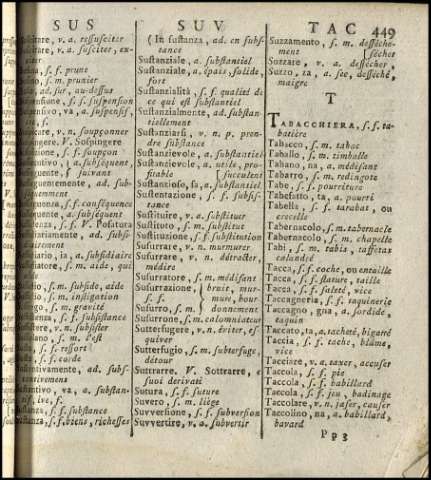 SUS
SUV
TAC 449
v. a. ressusciter
v. a. susciter, ex-
citer
s. f. prunt
s. m. prunier
ad. sur, au-dessus
s. f. suspension
va, a. suspensif,
v. a. soupçonner
V. Sospingere
s. f. soupçon
a. subséquent
suivant
ad. sub-
séquemment
s. f. conséquence
a. subséquent
s. f. V. Positura
ad. subsi-
diairement
io, a. subsidiaire
s. m. aide, qui
aide
s. m. subside, aide
s. m. instigation
s. m. gravité
s. f. subsistance
v. n. subsister
s. m. c'est
s. f. ressort
ad. subs-
tantivement
va, a. substan-
tif, ive, f.
s. f. substance
s. f. biens, richesses
( In sustanza, ad. en subs-
tance
Sustanziale, a. substantiel
Sustanziale, a. épais, solide,
fort
Sustanzialità, s. f. qualité de
ce qui est substantiel
Sustanzialmente, ad. substan-
tiellement
Sustanziarsi, v. n. p. pren-
dre substance
Sustanzievole, a. substantiel
Sustanzievole, a. utile, pro-
fitable ( succulent
Sustanzioso, sa, a. substantiel
Sustentazione, s. f. subsis-
tance
Sustituire, v. a. substituer
Sustituto, s. m. substitut
Sustituzione, s. f. substitution
Susurrare, v. n. murmurer
Susurrare, v. n. détracter,
médire
Susurratore, s. m. médisant
Susurrazione, } bruit, mur-
s. f. } mure, bour-
Susurro, s. m. } donnement
Susurrone, s. m. calomniateur
Sutterfugere, v. n. éviter, es-
quiver
Sutterfugio, s. m. subterfuge,
détour
Suttrarre. V. Sottrarre, e
suoi derivati
Sutura, s. f. suture
Suvero, s. m. liége
Suvversione, s. f. subversion
Suvvertire, v. a. subvertir
Suzzamento, s. m. dessèche-
ment
Suzzare, v. a. dessécher,
Suzzo, za, a. sec, desséché,
maigre
T
TABACCHIERA, s. f. ta-
batière
Tabacco, s. m. tabac
Taballo, s. m. timballe
Tabano, na, a. médisant
Tabarro, s. m. redingote
Tabe, s. f. pourriture
Tabefatto, ta, a. pourri
Tabella, s. f. tarabat, ou
crecelle
Tabernacolo, s. m. tabernacle
Tabernacolo, s. m. chapelle
Tabi, s. m. tabis, taffetas
calandré
Tacca, s. f. coche, ou entaille
Tacca, s. f. stature, taille
Tacca, s. f. saleté, vice
Taccagneria, s. f. taquinerie
Taccagno, gna, a. sordide,
taquin
Taccato, ta, a. tacheté, bigarré
Taccia, s. f. tache, blâme,
vice
Tacciare, v. a. taxer, accuser
Taccola, s. f. pie
Taccola, s. f. babillard
Taccola, s. f. jeu, badinage
Taccolare, v. n. jaser, causer
Taccolino, na, a. babillard,
bavard
Pp3